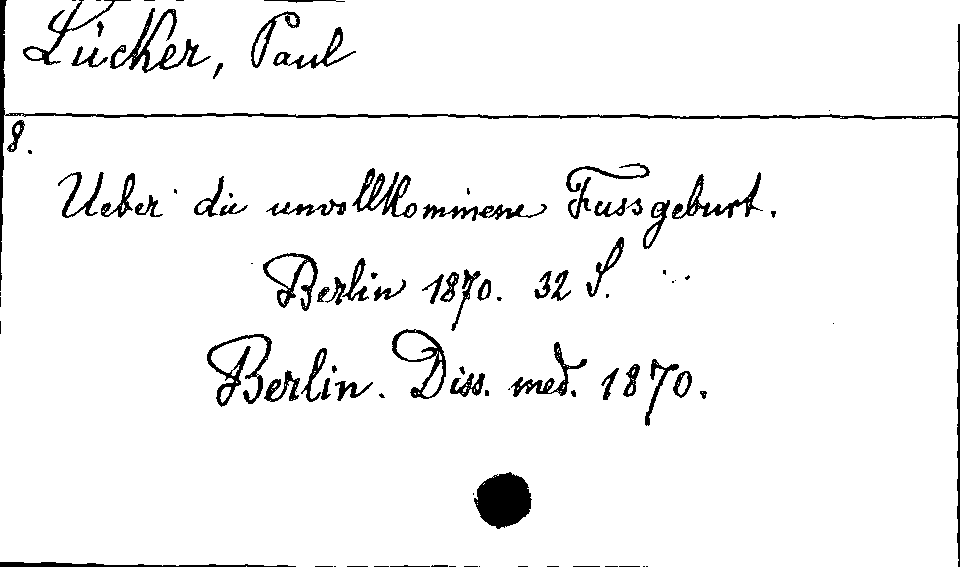 Lücker, Paul
8.
Ueber die unvollkommene Fussgeburt.
Berlin 1870. 32 S.
Berlin. Diss. med. 1870.